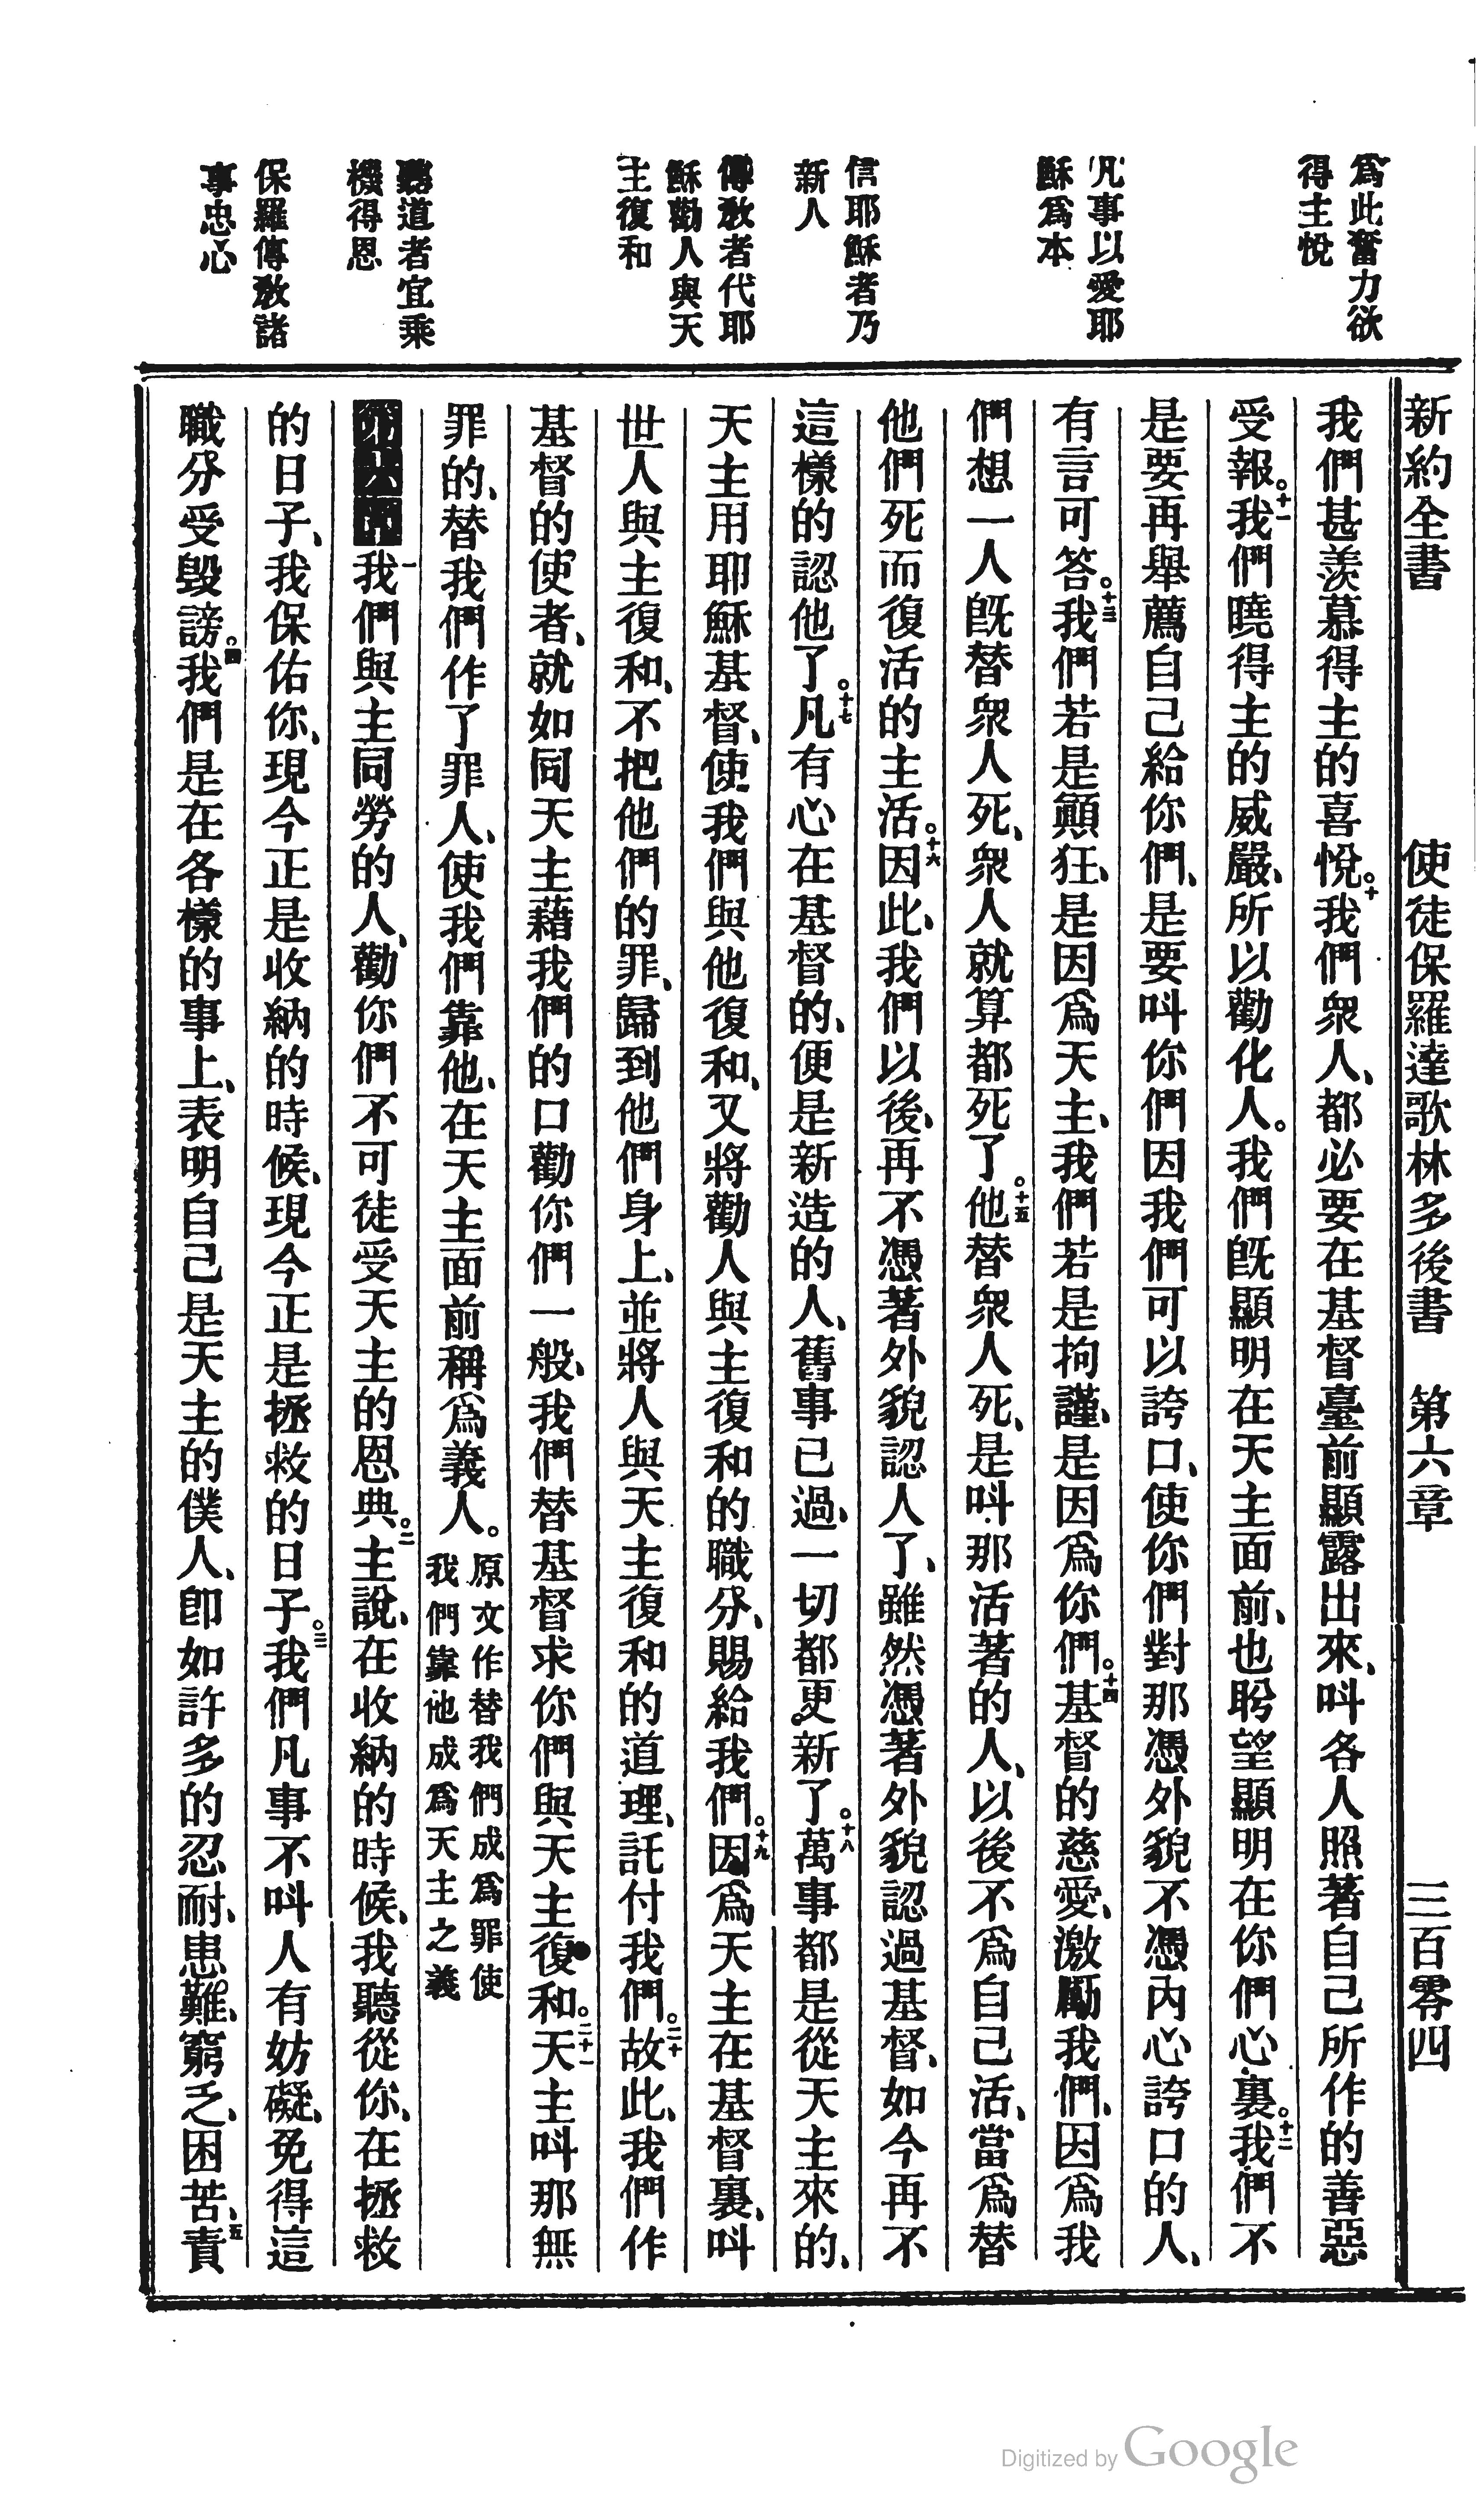 新約全書 使徒保羅達歌林多後書 第六章 三百零四
爲此奮力欲
得主悅
凡事以愛耶
穌爲本
信耶穌者乃
新人
傳敎者代耶
穌勸人與天
主復和
聽道者宜乘
機得恩
保羅傳敎諸
事忠心
我們甚羨慕得主的喜悅。十我們衆人、都必要在基督臺前顯露出來、呌各人照著自己所作的善惡
受報。十一我們曉得主的威嚴、所以勸化人。我們旣顯明在天主面前、也盼望顯明在你們心裏。十二我們不
是要再舉薦自己給你們、是要呌你們因我們可以誇口、使你們對那憑外貌不憑內心誇口的人、
有言可答。十三我們若是顚狂、是因爲天主、我們若是拘謹、是因爲你們。十四基督的慈愛、激勵我們、因爲我
們想一人旣替衆人死、衆人就算都死了。十五他替衆人死、是呌那活著的人、以後不爲自己活、當爲替
他們死而復活的主活。十六因此、我們以後、再不憑著外貌認人了、雖然憑著外貌認過基督、如今再不
這樣的認他了。十七凡有心在基督的、便是新造的人、舊事已過、一切都更新了。十八萬事都是從天主來的、
天主用耶穌基督、使我們與他復和、又將勸人與主復和的職分、賜給我們。十九因爲天主在基督裏、呌
世人與主復和、不把他們的罪、歸到他們身上、並將人與天主復和的道理、託付我們。二十故此、我們作
基督的使者、就如同天主藉我們的口勸你們一般、我們替基督求你們與天主復和。二十一天主呌那無
罪的、替我們作了罪人、使我們靠他、在天主面前稱爲義人。原文作替我們成爲罪使
我們靠他成爲天主之義
第六章一我們與主同勞的人、勸你們不可徒受天主的恩典。二主說、在收納的時候、我聽從你、在拯救
的日子、我保佑你、現今正是收納的時候、現今正是拯救的日子。三我們凡事不呌人有妨礙、免得這
職分受毀謗。四我們是在各樣的事上、表明自己是天主的僕人、卽如許多的忍耐、患難、窮乏、困苦、五責
Digitized by Google